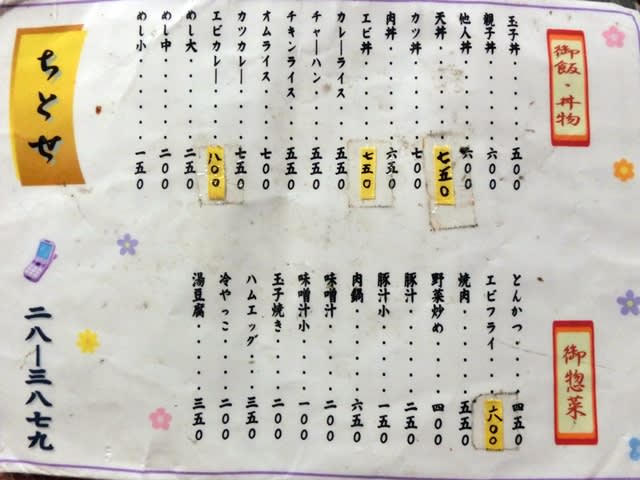 御飯・丼物
玉子丼・・・・・・五〇〇
親子丼・・・・・・六〇〇
他人丼・・・・・・六〇〇
天丼・・・・・・七五〇
カツ丼・・・・・・七〇〇
肉丼・・・・・・六五〇
エビ丼・・・・・・七五〇
カレーライス・・・・五五〇
チャーハン・・・・五五〇
チキンライス・・・・五五〇
オムライス・・・・七〇〇
カツカレー・・・・七五〇
エビカレー・・・・八〇〇
めし大・・・・・・二五〇
めし中・・・・・・二〇〇
めし小・・・・・・一五〇
御惣菜
とんかつ・・・・・四五〇
エビフライ・・・・六〇〇
焼肉・・・・・・五五〇
野菜炒め・・・・・四〇〇
豚汁・・・・・・二五〇
豚汁小・・・・・一五〇
肉鍋・・・・・・六五〇
味噌汁・・・・・二〇〇
味噌汁小・・・・一〇〇
玉子焼き・・・・二〇〇
ハムエッグ・・・・三五〇
冷やっこ・・・・二〇〇
湯豆腐・・・・・三五〇
ちとせ
二八ー三八七九